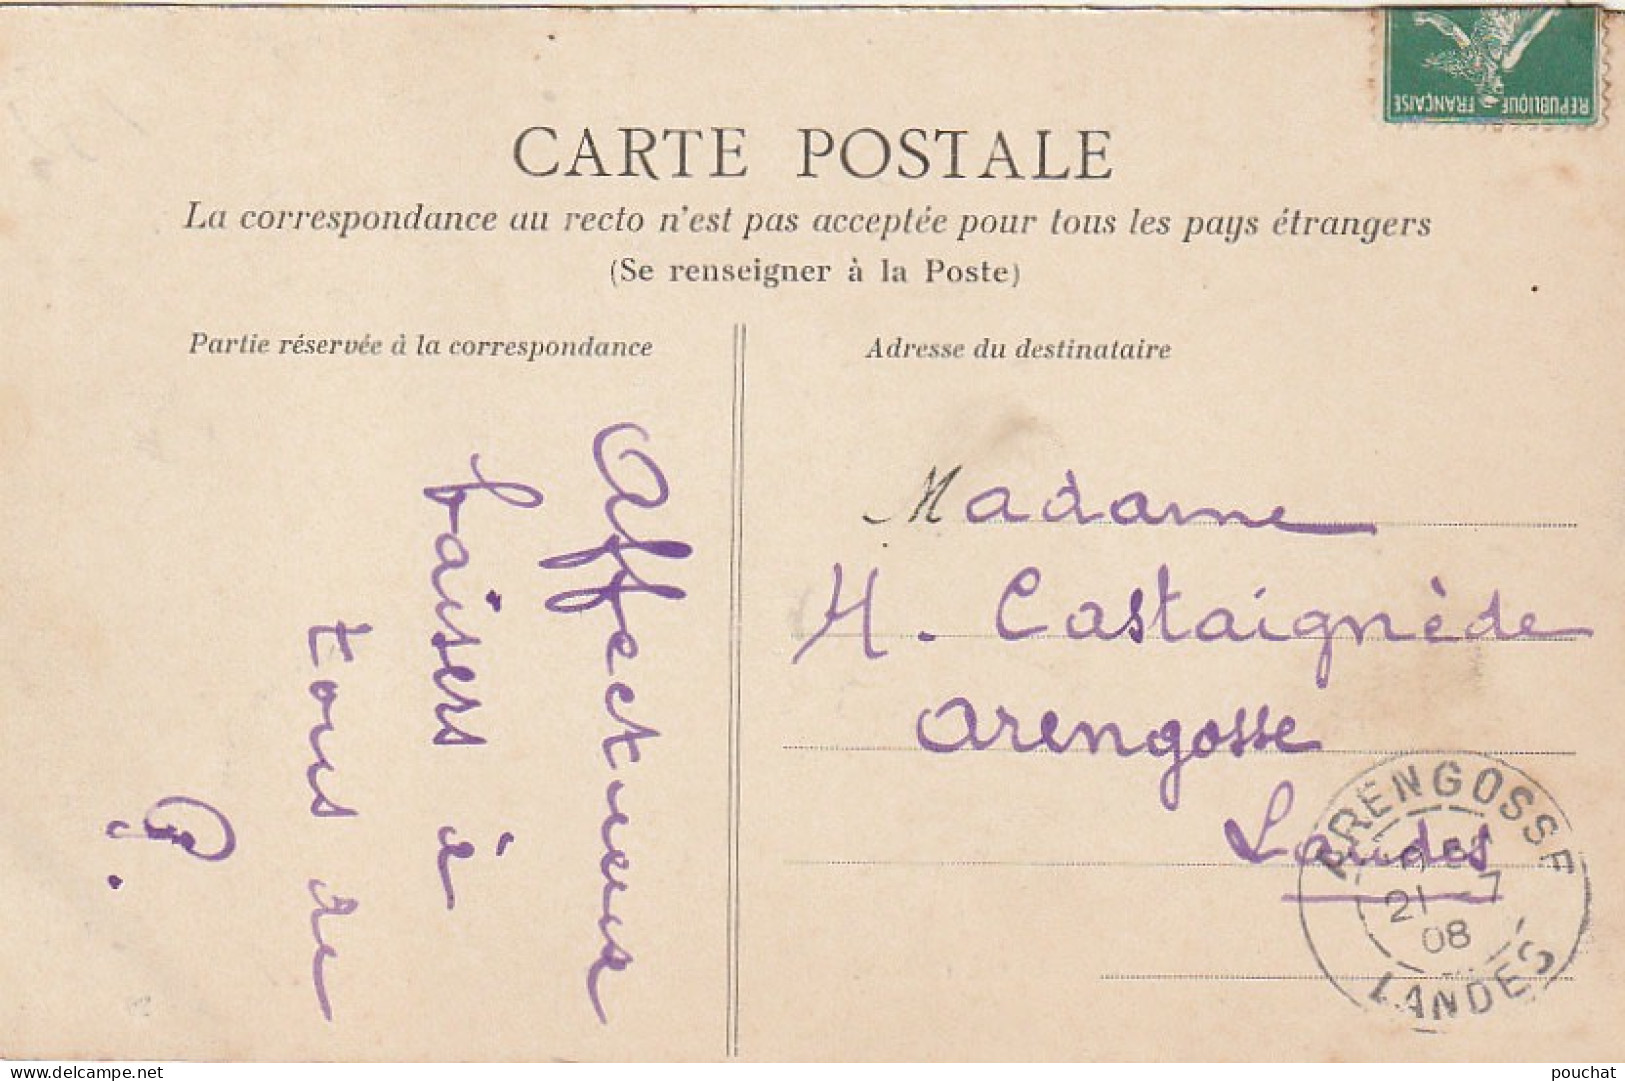 RÉPUBLIQUE FRANÇAISE
CARTE POSTALE
La correspondance au recto n'est pas acceptée pour tous les pays étrangers
(Se renseigner à la Poste)
Partie réservée à la correspondance
Affectueux
baisers à
tous de
P.
Adresse du destinataire
Madame
H. Castaignède
Arengosse
Landes
ARENGOSSE
21 - 7
08
LANDES
delcampe.net
pouchat